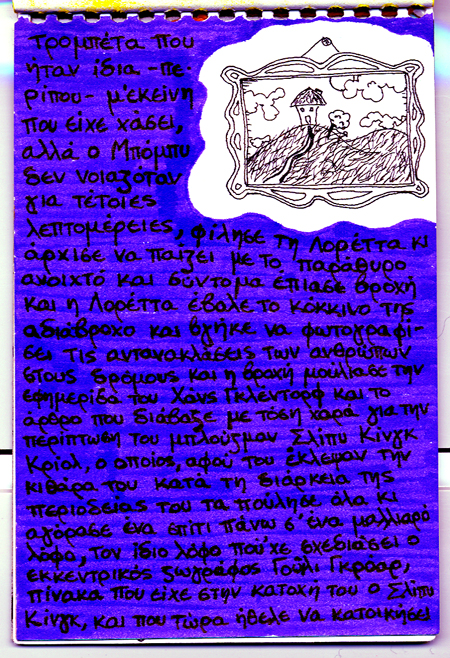 τρομπέτα που
ήταν ίδια -πε-
ρίπου- μ'εκείνη
που είχε χάσει,
αλλά ο Μπόμπυ
δεν νοιαζόταν
για τέτοιες
λεπτομέρειες, φίλησε τη Λορέττα κι
άρχισε να παίζει με το παράθυρο
ανοιχτό και σύντομα έπιασε βροχή
και η Λορέττα έβαλε το κόκκινο της
αδιάβροχο και βγήκε να φωτογραφί-
σει τις αντανακλάσεις των ανθρώπων
στους δρόμους και η βροχή μούλιασε την
εφημερίδα του Χάνς Γκλέντορφ και το
άρθρο που διάβαζε με τόση χαρά για την
περίπτωση του μπλούζμαν Σλίπυ Κίνγκ
Κριόλ, ο οποίος, αφού του έκλεψαν την
κιθάρα του κατά τη διάρκεια της
περιοδείας του τα πούλησε όλα κι
αγόρασε ένα σπίτι πάνω σ'ένα μαλλιαρό
λόφο, τον ίδιο λόφο που'χε σχεδιάσει ο
εκκεντρικός ζωγράφος Γουίλι Γκρόαρ,
πίνακα που είχε στην κατοχή του ο Σλίπυ
Κίνγκ, και που τώρα ήθελε να κατοικήσει